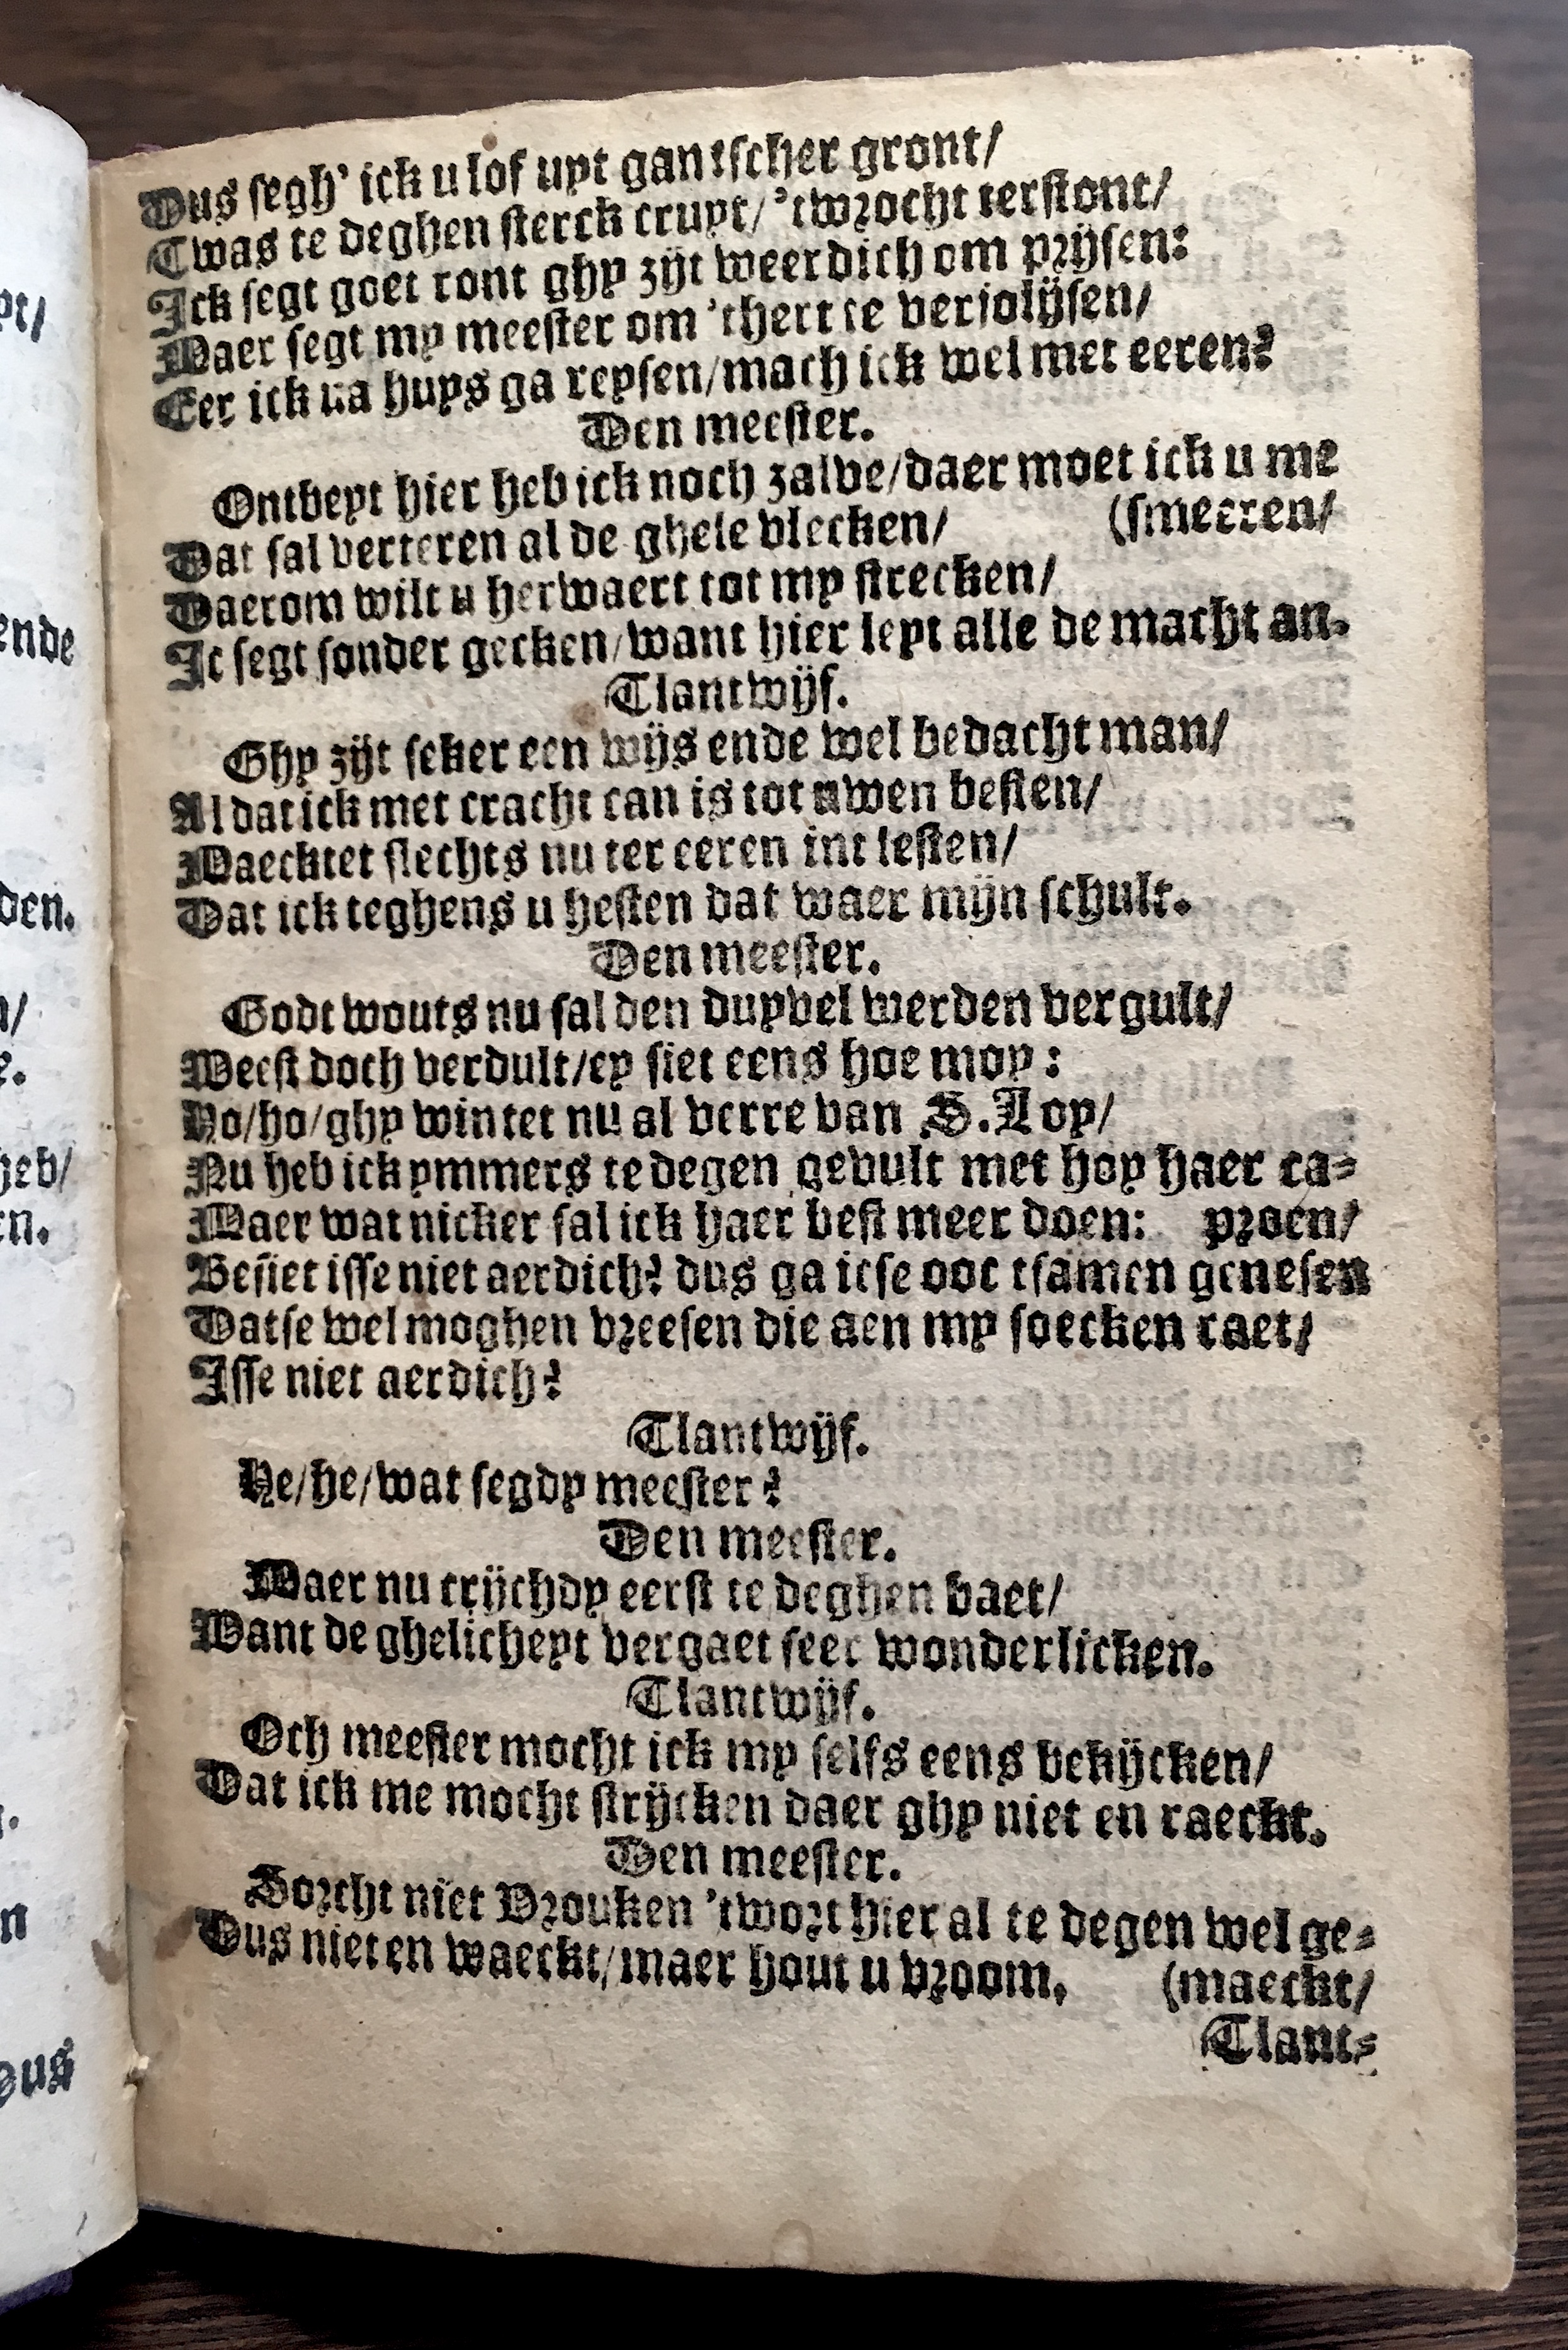 Dus segh' ick u lof uyt gantscher gront/
Twas te deghen sterck cruyt/ 'twrocht terstont/
Ick segt goet ront ghy zijt weerdich om prijsen:
Maer segt my meester om 'thert te verjolijsen/
Eer ick na huys ga reysen/mach ick wel met eeren?
Den meester.
Ontbeyt hier heb ick noch zalve/daer moet ick u me
(smeeren/
Dat sal verteren al de ghele vlecken/
Daerom wilt u herwaert tot my strecken/
Ic segt sonder gecken/want hier leyt alle de macht an.
Tlantwijf.
Ghy zijt seker een wijs ende wel bedacht man/
Al dat ick met cracht can is tot uwen besten/
Maecktet slechts nu ter eeren int lesten/
Dat ick teghens u hesten dat waer mijn schult.
Den meester.
Godt wouts nu sal den duyvel werden vergult/
Weest doch verdult/ey siet eens hoe moy:
Ho/ho/ghy wintet nu al verre van S. Loy/
Nu heb ick ymmers te degen gevult met hoy haer ca-
Maer wat nicker sal ick haer best meer doen: proen/
Besiet isse niet aerdich? dus ga icse ooc tsamen genesen
Datse wel moghen vreesen die aen my soecken raet/
Isse niet aerdich?
Tlantwijf.
He/he/wat segdy meester?
Den meester.
Maer nu crijchdy eerst te deghen baet/
Want de ghelicheyt vergaet seer wonderlicken.
Tlantwijf.
Och meester mocht ick my selfs eens bekijcken/
Dat ick me mocht strijcken daer ghy niet en raeckt.
Den meester.
Sorcht niet Vrouken 'twort hier al te degen wel ge-
Dus niet en waeckt/maer hout u vroom. (maeckt/
Tlant-
pt/
ende
den.
n/
e.
heb/
en.
n
Dus